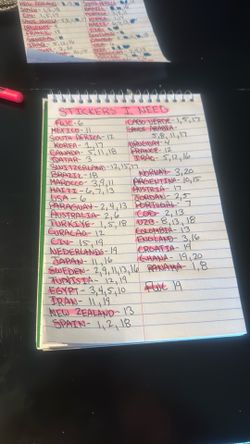 STICKERS I NEED
FWC-6
MEXICO-11
SOUTH AFRICA-12
KOREA-1,17
CANADA-5,11,18
QATAR-3
SWITZERLAND-12,15,17
BRAZIL-18
MAROCCO-3,9,11
HAITI-6,7,13
USA-6
PARAGUAY-2,4,13
AUSTRALIA-2,6
TURKIYE-1,5,18
CURACAO-12
CIV-15,19
NEDERLANDS-19
JAPAN-11,16
SWEDEN-2,9,11,13,16
TUNISIA-12,19
EGYPT-3,4,5,10
IRAN-11,19
NEW ZEALAND-13
SPAIN-1,2,18
CABO VERDE-1,5,17
SAUDI ARABIA-
5,8,11,17
URUGUAY-4
FRANCE-12
IRAQ-5,12,16
NORWAY-3,20
ARGENTINA-10,15
AUSTRIA-17
JORDAN-2,5
PORTUGAL-
COD-2,13
UZB-8,13,18
COLOMBIA-13
ENGLAND-3,16
CROATIA-19
GHANA-19,20
PANAMA-1,8
FWC 19